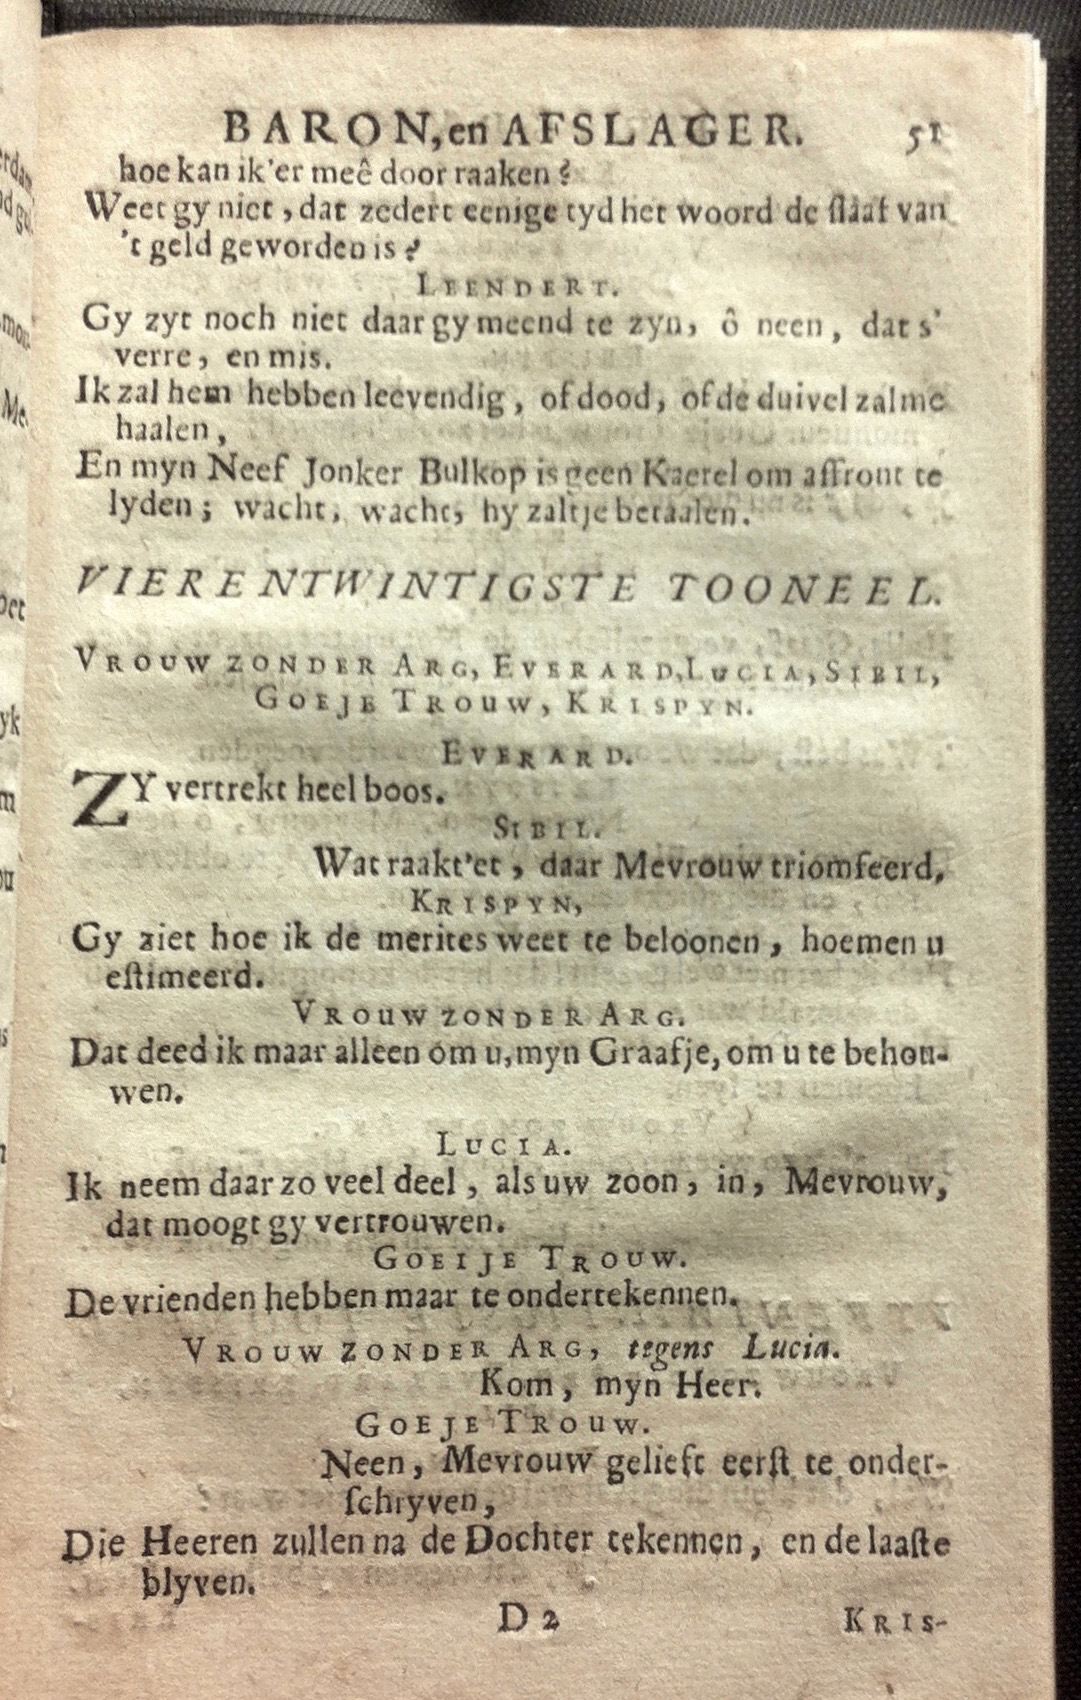 BARON, en AFSLAGER. 51
hoe kan ik'er meê door raaken?
Weet gy niet, dat zedert eenige tyd het woord de slaaf van
't geld geworden is?
LEENDERT.
Gy zyt noch niet daar gy meend te zyn, ô neen, dat s'
verre, en mis.
Ik zal hem hebben leevendig, of dood, of de duivel zal me
haalen,
En myn Neef Jonker Bulkop is geen Kaerel om affront te
lyden; wacht, wacht, hy zaltje betaalen.
VIERENTWINTIGSTE TOONEEL.
VROUW ZONDER ARG, EVERARD, LUCIA, SIBIL,
GOEJE TROUW, KRISPYN.
EVERARD.
ZY vertrekt heel boos.
SIBIL.
Wat raakt'et, daar Mevrouw triomfeerd,
KRISPYN,
Gy ziet hoe ik de merites weet te beloonen, hoemen u
estimeerd.
VROUW ZONDER ARG.
Dat deed ik maar alleen om u, myn Graafje, om u te behou-
wen.
LUCIA.
Ik neem daar zo veel deel, als uw zoon, in, Mevrouw,
dat moogt gy vertrouwen.
GOEIJE TROUW.
De vrienden hebben maar te ondertekennen.
VROUW ZONDER ARG, tegens Lucia.
Kom, myn Heer.
GOEJE TROUW.
Neen, Mevrouw gelieft eerst te onder-
schryven,
Die Heeren zullen na de Dochter tekennen, en de laaste
blyven.
D 2 KRIS-